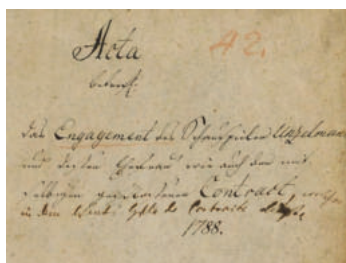 Acta 42.
betreff.
das Engagement des Schauspielers Unzelmann
und dessen Ehefrau wie auch den mit
selbigen getroffenen Contract, welcher
in dem
1788.